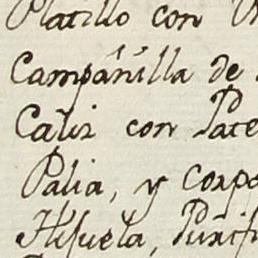 Platillo con
Campánílla de
Caliz con Pate
Palia, y Corpo
Hijuela, Purif